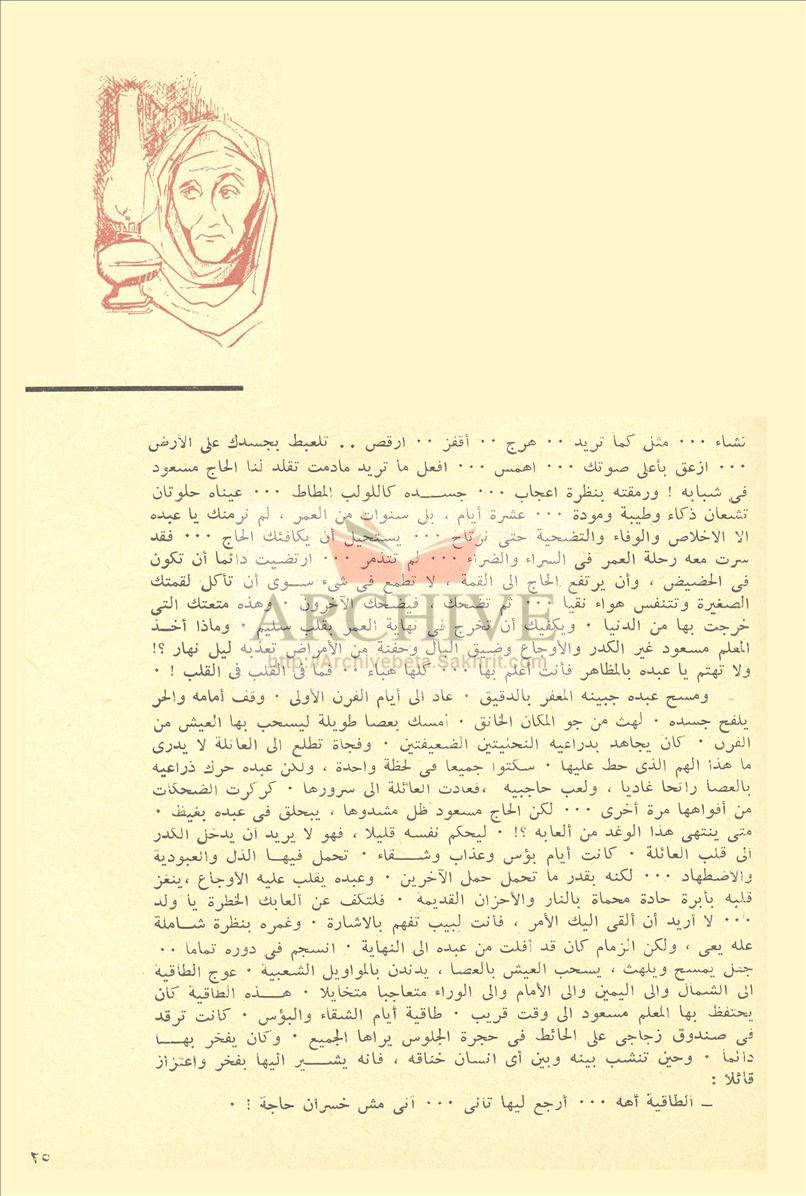 نشاء ٠٠٠ مثل كما تريد ٠٠ هرج ٠٠ أقفز ٠٠ ارقص ٠٠ تلعبط بجسدك على الأرض
٠٠٠ ازعق بأعلى صوتك ٠٠٠ اهمس ٠٠٠ افعل ما تريد مادمت تقلد لنا الحاج مسعود
فى شبابه ! ورمقته بنظرة اعجاب ٠٠٠ جسده كاللولب المطاط ٠٠٠ عيناه حلوتان
تشعان ذكاء وطيبة ومودة ٠٠٠ عشرة أيام ، بل سنوات من العمر ، لم نرمنك يا عبده
الا الاخلاص والوفاء والتضحية حتى نرتاح ٠٠٠ يستحيل أن يكافئك الحاج ٠٠٠ فقد
سرت معه رحلة العمر فى السراء والضراء ٠٠٠ لم تتذمر ٠٠٠ ارتضيت دائما أن تكون
فى الحضيض ، وأن يرتفع الحاج الى القمة ، لا تطمع فى شىء سوى أن تأكل لقمتك
الصغيرة وتتنفس هواء نقيا ٠٠٠ ثم تضحك ، فيضحك الآخرون ٠ وهذه متعتك التى
خرجت بها من الدنيا ٠ ويكفيك أن تخرج فى نهاية العمر بقلب سليم ٠ وماذا أخذ
المعلم مسعود غير الكدر والأوجاع وضيق البال وحفنة من الأمراض تعذبه ليل نهار ؟!
ولا تهتم يا عبده بالمظاهر فأنت أعلم بها ٠٠٠ كلها هباء ٠٠ فما فى القلب فى القلب ! ٠
ومسح عبده جبينه المعفر بالدقيق ٠ عاد الى أيام الفرن الأولى ٠ وقف أمامه والحر
يلفح جسده ٠ لهث من جو المكان الخانق ٠ أمسك بعصا طويلة ليسحب بها العيش من
الفرن ٠ كان يجاهد بذراعيه النحيلتين الضعيفتين ٠ وفجأة تطلع الى العائلة لا يدرى
ما هذا الهم الذى حط عليها ٠ سكتوا جميعا فى لحظة واحدة ، ولكن عبده حرك ذراعيه
بالعصا رائحا غاديا ، ولعب حاجبيه ،فعادت العائلة الى سرورها ٠ كركرت الضحكات
من أفواهها مرة أخرى ٠٠٠ لكن الحاج مسعود ظل مشدوها ، يبحلق فى عبده بغيظ ٠
متى ينتهى هذا الوغد من ألعابه ؟! ٠ ليحكم نفسه قليلا ، فهو لا يريد أن يدخل الكدر
الى قلب العائلة ٠ كانت أيام بؤس وعذاب وشقاء ٠ تحمل فيها الذل والعبودية
والاضطهاد ٠٠٠ لكنه بقدر ما تحمل حمل الآخرين ٠ وعبده يقلب عليه الأوجاع ،ينغز
قلبه بأبرة حادة محماة بالنار والأحزان القديمة ٠ فلتكف عن ألعابك الخطرة يا ولد
٠٠٠ لا أريد أن ألقى اليك الأمر ، فأنت لبيب تفهم بالاشارة ٠ وغمره بنظرة شاملة
عله يعى ، ولكن الزمام كان قد أفلت من عبده الى النهاية ٠ انسجم فى دوره تماما ٠٠
جعل يمسح ويلهث ، يسحب العيش بالعصا ، يدندن بالمواويل الشعبية ٠ عوج الطاقية
الى الشمال والى اليمين والى الأمام والى الوراء متعاجبا متخايلا ٠ هذه الطاقية كان
يحتفظ بها المعلم مسعود الى وقت قريب ٠ طاقية أيام الشقاء والبؤس ٠ كانت ترقد
فى صندوق زجاجى على الحائط فى حجرة الجلوس يراها الجميع ٠ وكان يفخر بها
دائما ٠ وحين تنشب بينه وبين أى انسان خناقه ، فانه يشير اليها بفخر واعتزاز
قائلا :
ــ الطاقية أهه ٠٠٠ أرجع ليها تانى ٠٠٠ أنى مش خسران حاجة ! ٠
ARCHIVE
http://Archivebeta.Sakhrit.com
٢٥